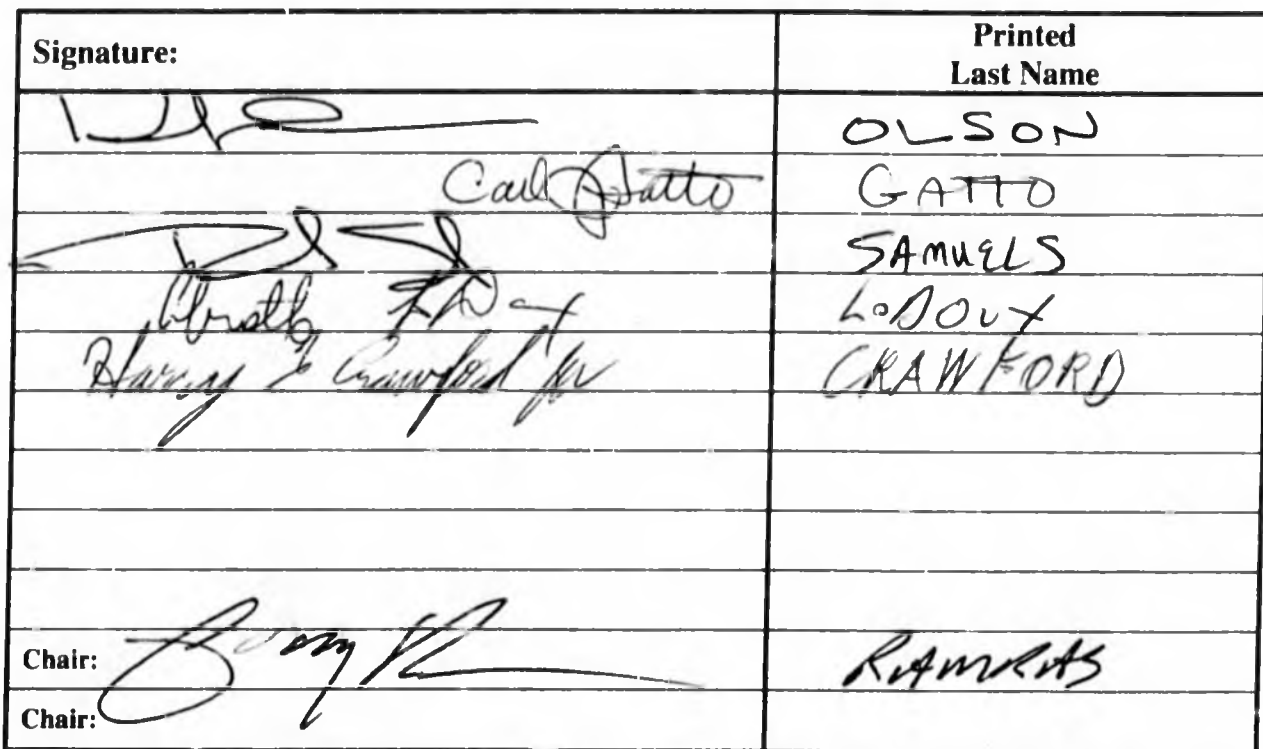 Signature: Printed Last Name
OLSON
Carl J Gatto GATTO
SAMUELS
LeDoux
Harry T Crawford Jr CRAWFORD
Chair: RAMRAS
Chair: